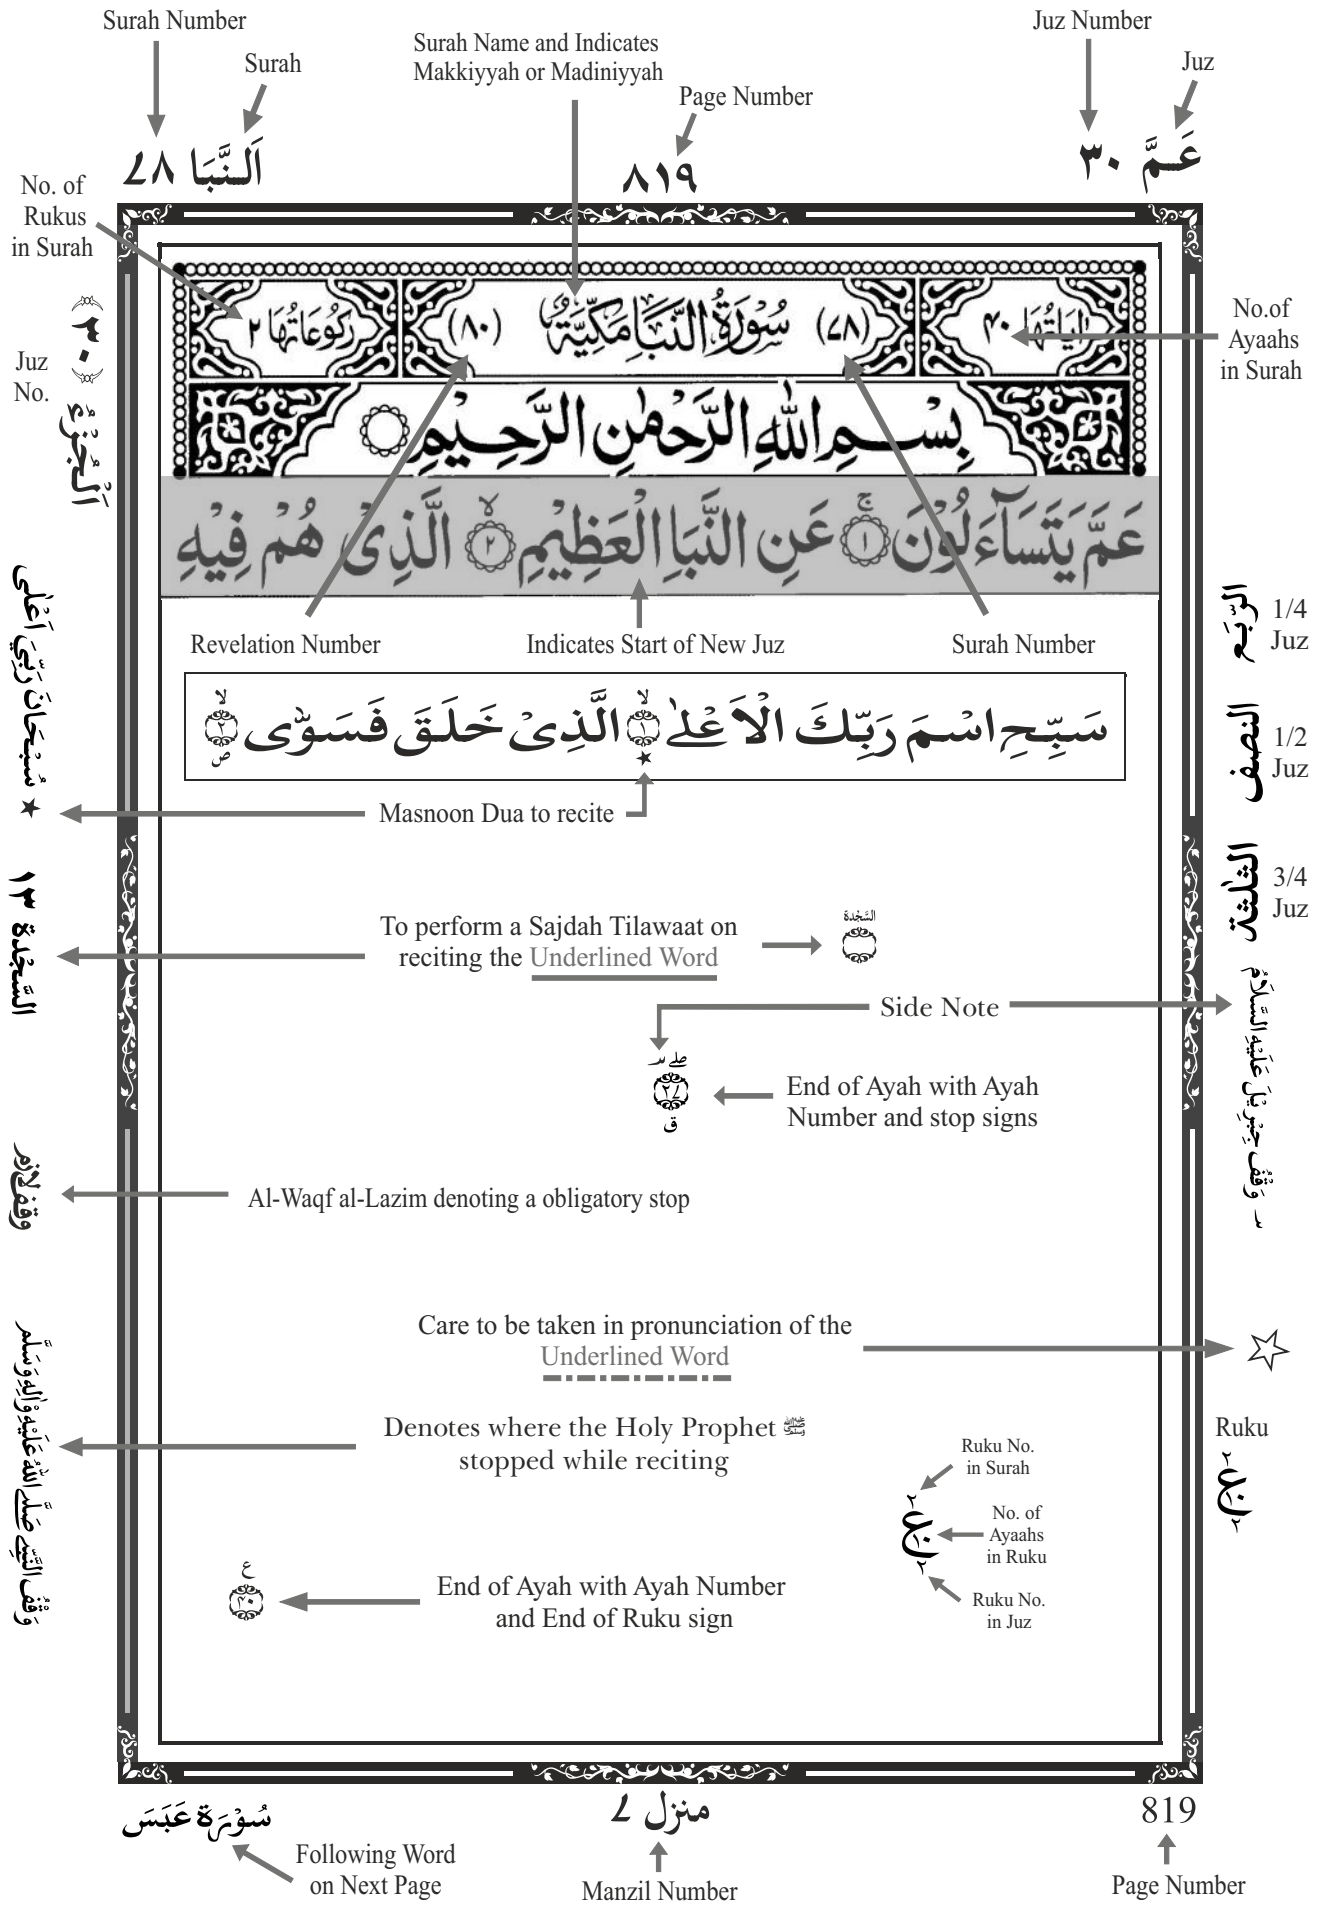 Surah Number
Juz Number
Surah Name and Indicates
Makkiyyah or Madiniyyah
Surah
Juz
Page Number
اَلنَّبَا ٧٨
٨١٩
عَمَّ ٣٠
No. of
Rukus
in Surah
اٰيَاتُهَا ٤٠
(٧٨) سُوْرَةُ النَّبَاِ مَكِّيَّةٌ (٨٠)
رُكُوْعَاتُهَا ٢
No.of
Ayaahs
in Surah
Juz
No.
اَلْجُزْءُ ﴿٣٠﴾
بِسْمِ اللّٰهِ الرَّحْمٰنِ الرَّحِيْمِ
عَمَّ يَتَسَآءَلُوْنَ ۚ ١ عَنِ النَّبَاِ الْعَظِيْمِ ۙ ٢ الَّذِيْ هُمْ فِيْهِ
Revelation Number
Indicates Start of New Juz
Surah Number
الرّبع
1/4
Juz
سَبِّحِ اسْمَ رَبِّكَ الْاَعْلٰى ۙ ١ ★ الَّذِيْ خَلَقَ فَسَوّٰى ۙ ٢ ص
النصف
1/2
Juz
★ سُبْحَانَ رَبِّيَ اَعْلٰى
Masnoon Dua to recite
الثلثة
3/4
Juz
السَّجْدَة ١٣
To perform a Sajdah Tilawaat on
reciting the Underlined Word
السَّجْدَة
Side Note
صلے س
٢٧
ق
س وَقْفُ جِبْرِيْلَ عَلَيْهِ السَّلَامُ
End of Ayah with Ayah
Number and stop signs
وقف لازم
Al-Waqf al-Lazim denoting a obligatory stop
Care to be taken in pronunciation of the
Underlined Word
وَقْفُ النَّبِيِّ صَلَّى اللّٰهُ عَلَيْهِ وَاٰلِهٖ وَسَلَّم
Denotes where the Holy Prophet ﷺ
stopped while reciting
Ruku
Ruku No.
in Surah
No. of
Ayaahs
in Ruku
Ruku No.
in Juz
ع
٤٠
End of Ayah with Ayah Number
and End of Ruku sign
سُوْرَة عَبَسَ
منزل ٧
819
Following Word
on Next Page
Manzil Number
Page Number